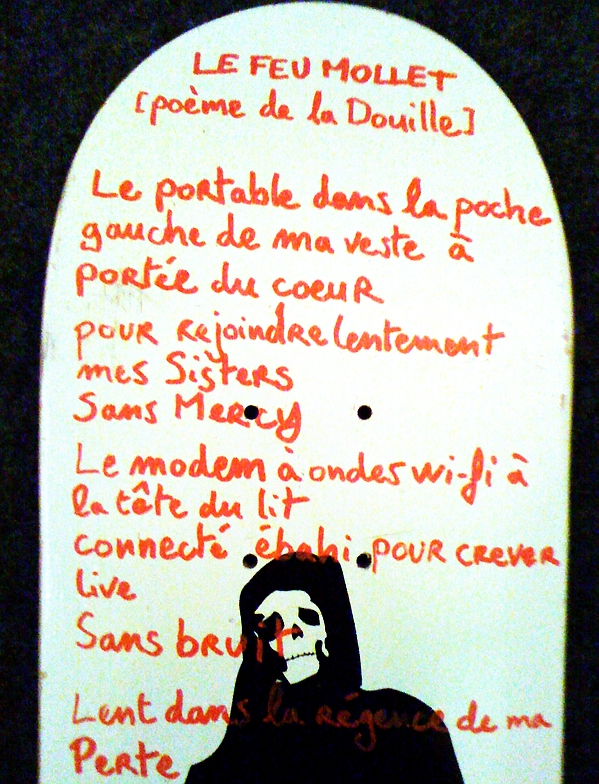 LE FEU MOLLET
[poème de la Douille]
Le portable dans la poche
gauche de ma veste à
portée du coeur
pour rejoindre lentement
mes Sisters
Sans Mercy
Le modem à ondes wi-fi à
la tête du lit
connecté ébahi pour crever
live
Sans bruit
Lent dans la régence de ma
Perte